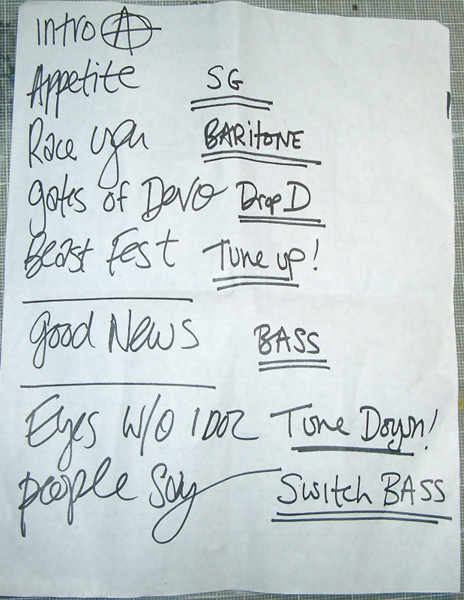 intro A
Appetite SG
Race you BARITONE
gates of Devo Drop D
Beast Fest Tune up!
good News BASS
Eyes W/O IDOL Tune Down!
people Say Switch BASS